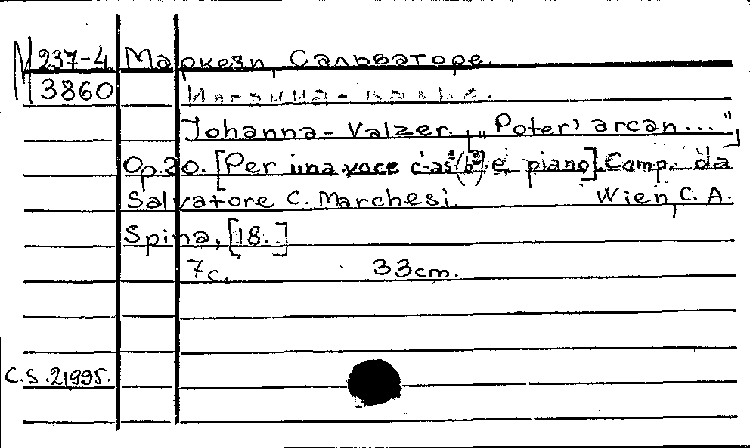 М 237-4 Маркези, Сальваторе.
3860 Иоганна-вальс.
Johanna-Valzer. [„Poter' arcan...“]
Op.20. [Per una voce c-as²(b²) e piano]. Comp. da
Salvatore C. Marchesi. Wien, C. A.
Spina, [18. ]
7 c. 33 cm.
C.S. 21995.